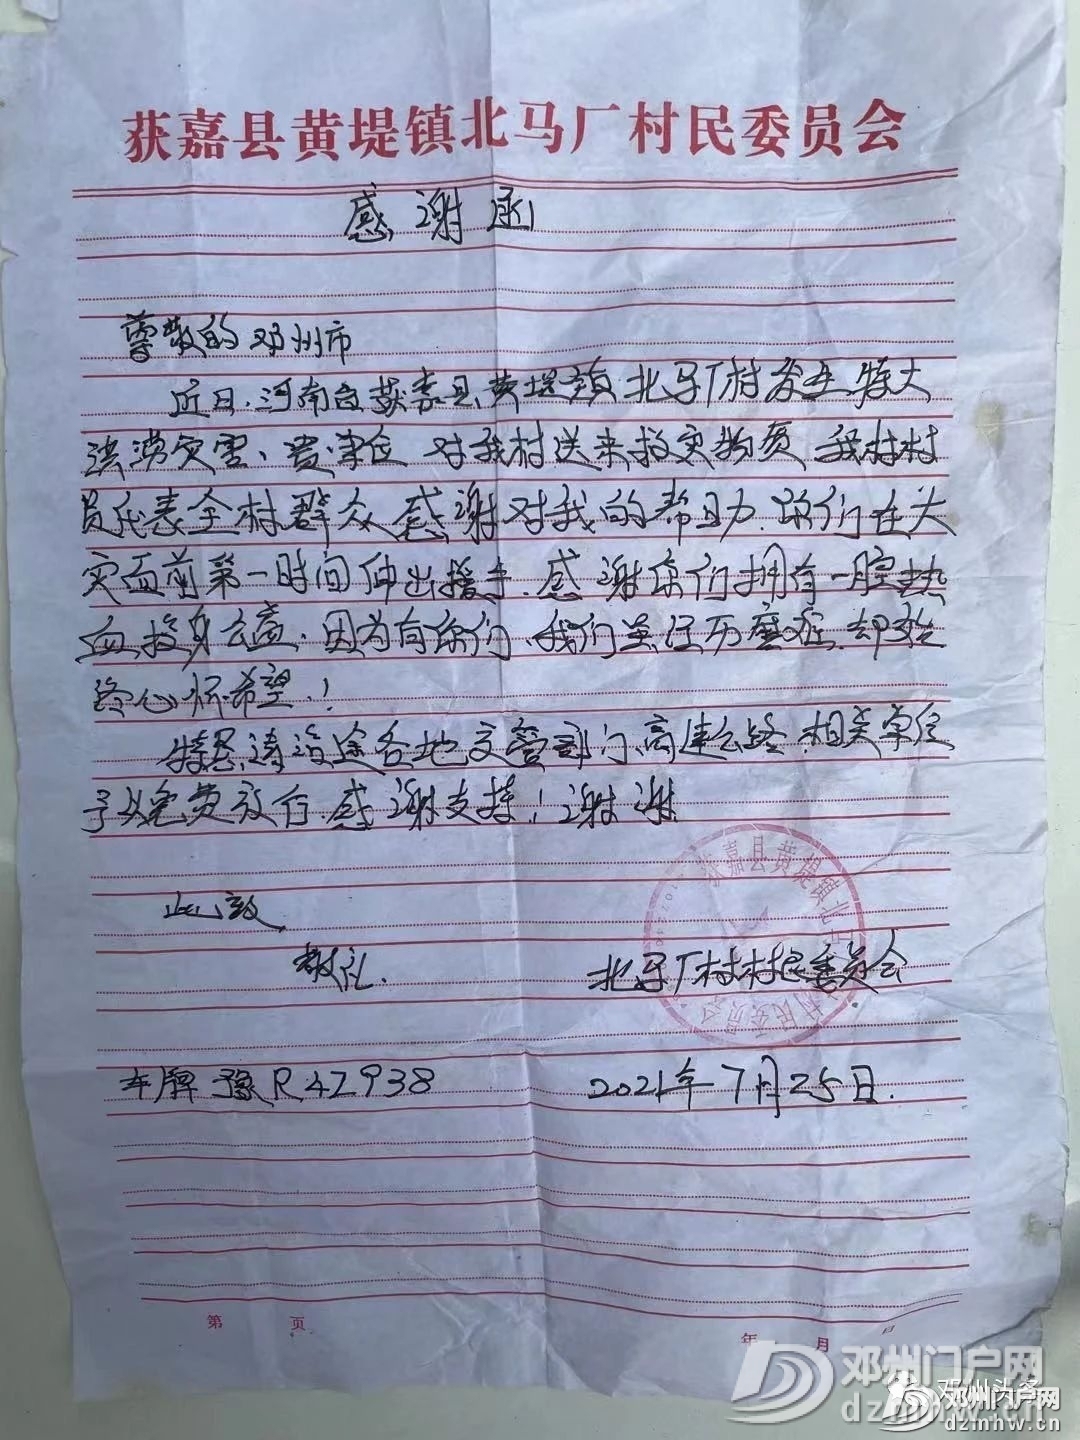 获嘉县黄堤镇北马厂村民委员会
感谢函
尊敬的邓州市
近日.河南省获嘉县黄堤镇北马厂村发生特大
洪涝灾害、贵单位对我村送来救灾物资 我村村
员代表全村群众感谢对我的帮助.你们在大
灾面前第一时间伸出援手.感谢你们拥有一腔热
血投身公益.因为有你们、我们虽经历磨难.却始
终心怀希望.!
特恳请沿途各地交管部门、高速公路.相关单位
予以免费放行 感谢支持!谢谢
此致
敬礼.
获嘉县黄堤镇北马厂村民委员会
北马厂村村民委员会
车牌 豫R42938
2021年7月25日.
第 页
年 月 日
邓州门户网
dzmhw.cn
邓州头条
邓州门户网
dzmhw.cn